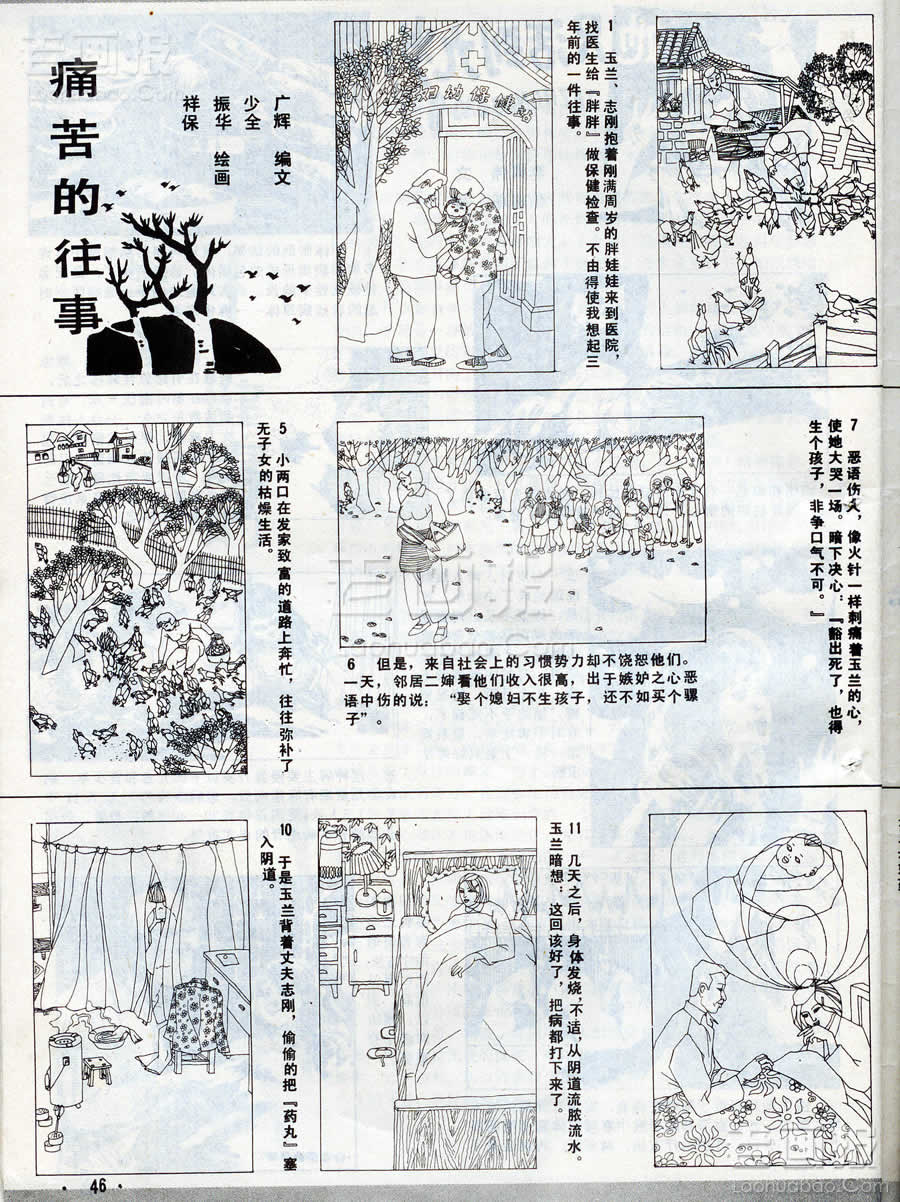 痛苦的往事
广辉 编文
少全
振华 绘画
祥保
妇幼保健站
1 玉兰、志刚抱着刚满周岁的胖娃娃来到医院，
找医生给『胖胖』做保健检查。不由得使我想起三
年前的一件往事。
5 小两口在发家致富的道路上奔忙，往往弥补了
无子女的枯燥生活。
6 但是，来自社会上的习惯势力却不饶恕他们。
一天，邻居二婶看他们收入很高，出于嫉妒之心恶
语中伤的说：“娶个媳妇不生孩子，还不如买个骡
子”。
7 恶语伤人，像火针一样刺痛着玉兰的心，
使她大哭一场。暗下决心：『豁出死了，也得
生个孩子，非争口气不可。』
10 于是玉兰背着丈夫志刚，偷偷的把『药丸』塞
入阴道。
11 几天之后，身体发烧，不适，从阴道流脓流水。
玉兰暗想：这回该好了，把病都打下来了。
· 46 ·
老画报
Laonuabao.Com